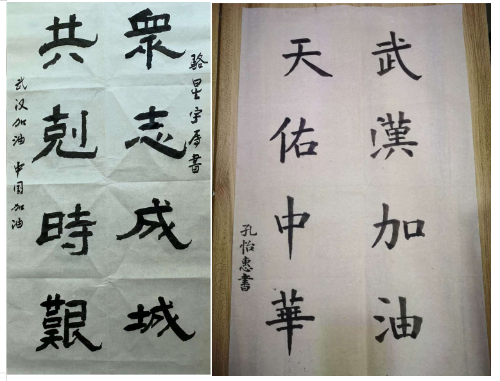 衆志成城
共剋時艱
武汉加油 中国加油
駱星宇書
武漢加油
天佑中華
孔怡惠書